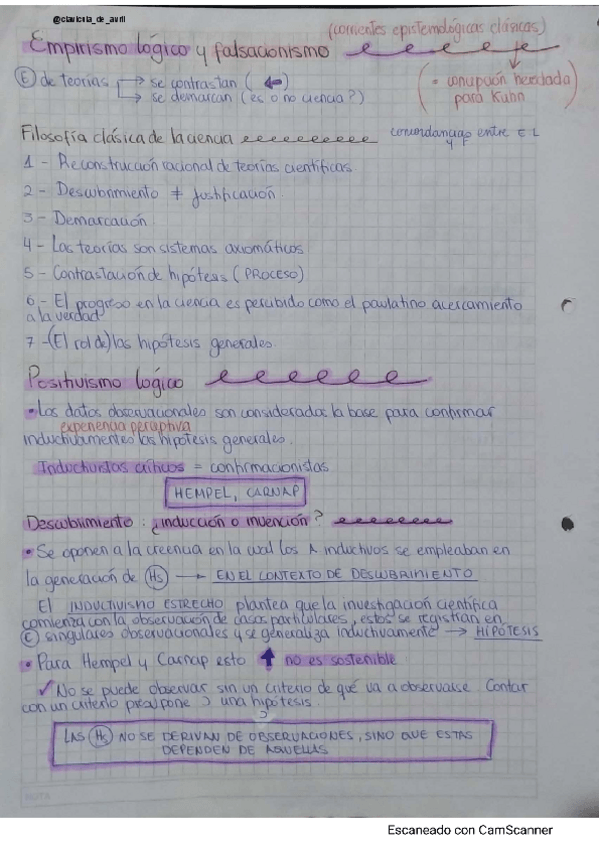 @clavicula_de_avril
(corrientes epistemológicas clásicas)
Empirismo lógico y falsacionismo
(= concepción heredada
para Kuhn)
Ⓔ de teorías → se contrastan (←)
→ se demarcan (es o no ciencia?)
Filosofía clásica de la ciencia concordancias entre E L
y F
1 - Reconstrucción racional de teorías científicas
2 - Descubrimiento ≠ Justificación
3 - Demarcación
4 - Las teorías son sistemas axiomáticos
5 - Contrastación de hipótesis (PROCESO)
6 - El progreso en la ciencia es percibido como el paulatino acercamiento
a la verdad
7 - (El rol de) las hipótesis generales
Positivismo lógico
• Los datos observacionales son considerados la base para confirmar
experiencia perceptiva
inductivamentes las hipótesis generales.
Inductivistas críticos = confirmacionistas
HEMPEL, CARNAP
Descubrimiento: ¿inducción o invención?
• Se oponen a la creencia en la cual los A inductivos se empleaban en
la generación de (Hs) → EN EL CONTEXTO DE DESCUBRIMIENTO
El INDUCTIVISMO ESTRECHO plantea que la investigación científica
comienza con la observación de casos particulares, estos se registran en
Ⓔ singulares observacionales y se generaliza inductivamente → HIPÓTESIS
• Para Hempel y Carnap esto ↑ no es sostenible
✓ No se puede observar sin un criterio de qué va a observarse. Contar
con un criterio presupone una hipótesis.
LAS (Hs) NO SE DERIVAN DE OBSERVACIONES, SINO QUE ESTAS
DEPENDEN DE AQUELLAS
Escaneado con CamScanner